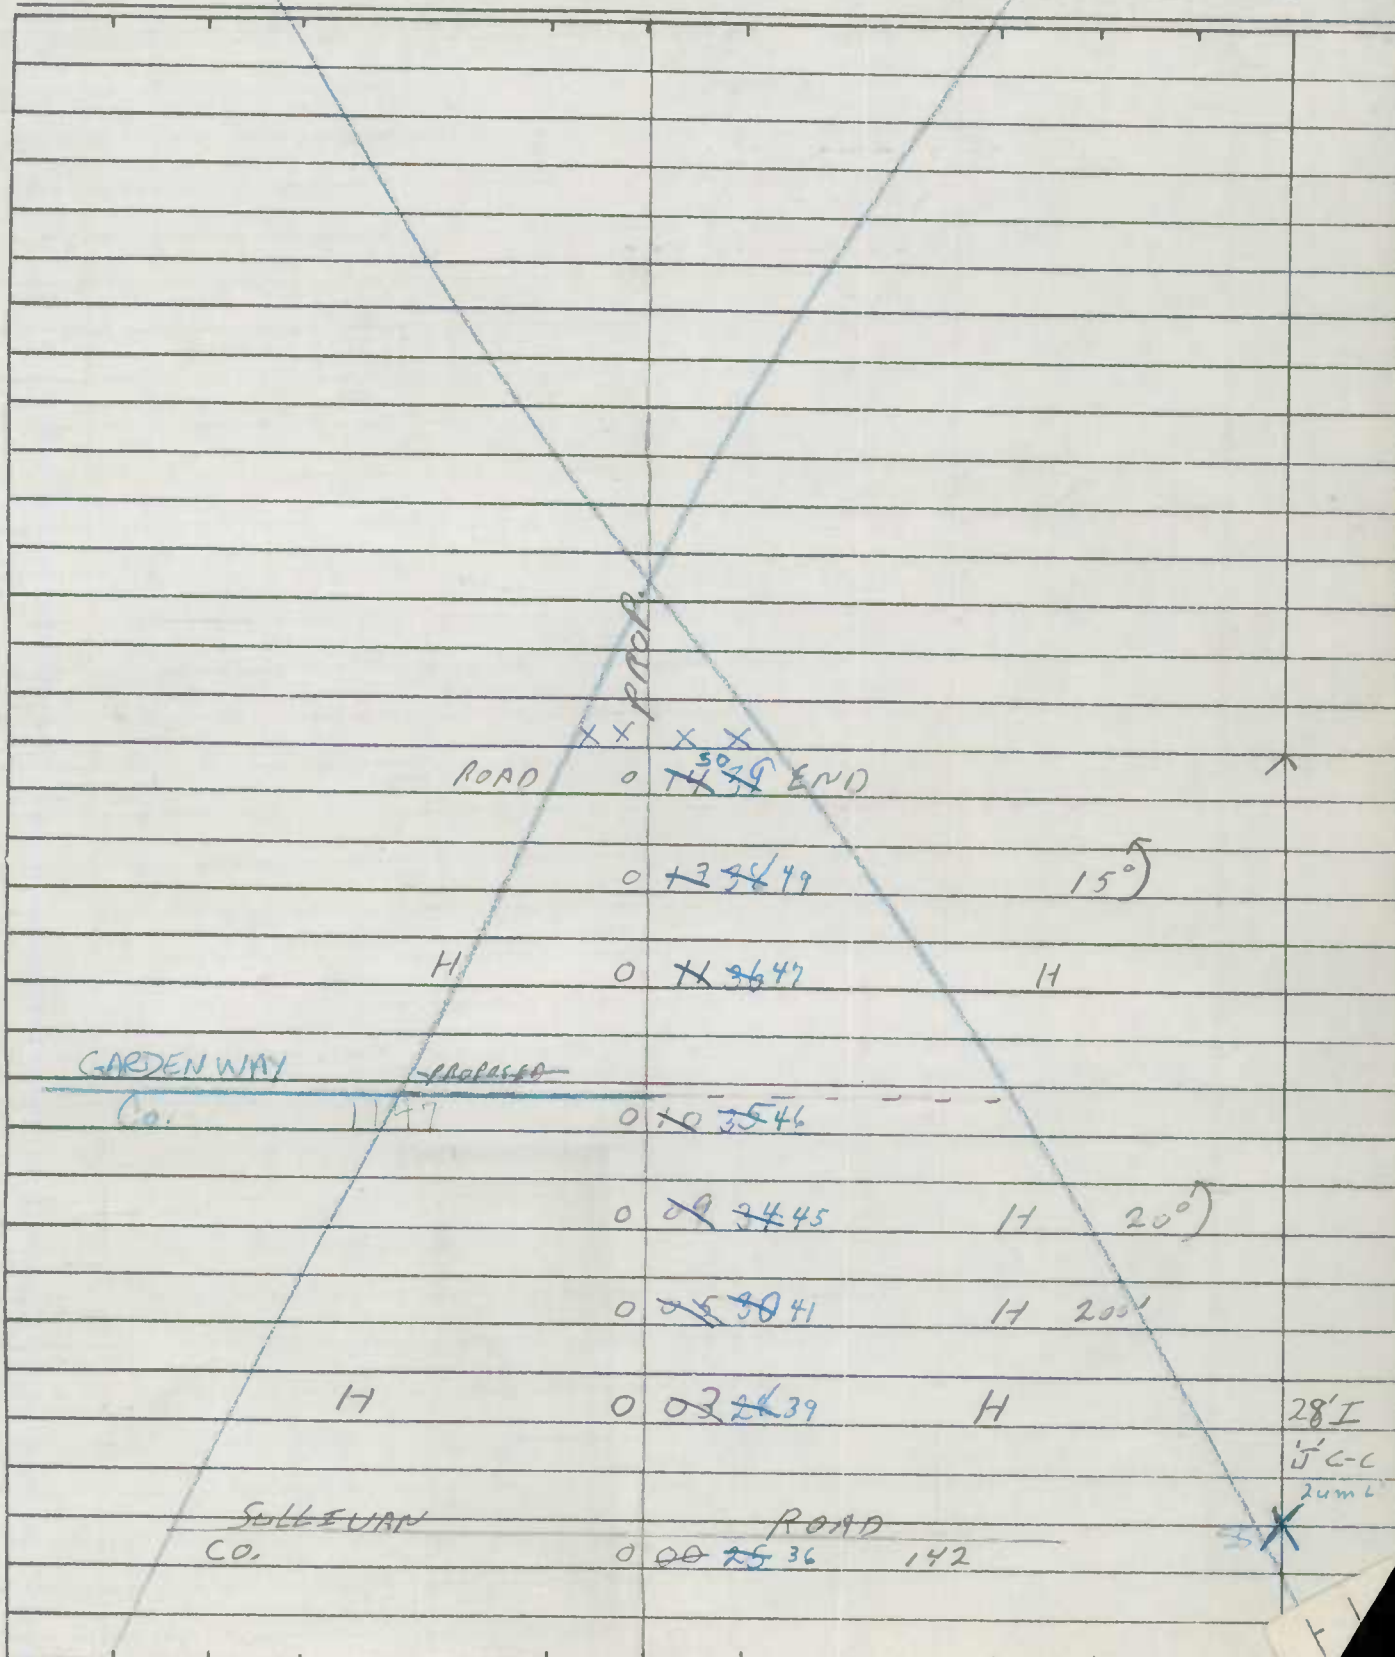 PROP.
X X X X
ROAD O 14 39 50 END
O 13 38 49 15°
H O 11 36 47 H
GARDEN WAY PROPOSED
Co. 1147 O 10 35 46
O 09 34 45 H 20°
O 05 30 41 H 200'
H O 03 28 39 H 28' I
C-C
SULLIVAN ROAD
CO. O 00 25 36 142